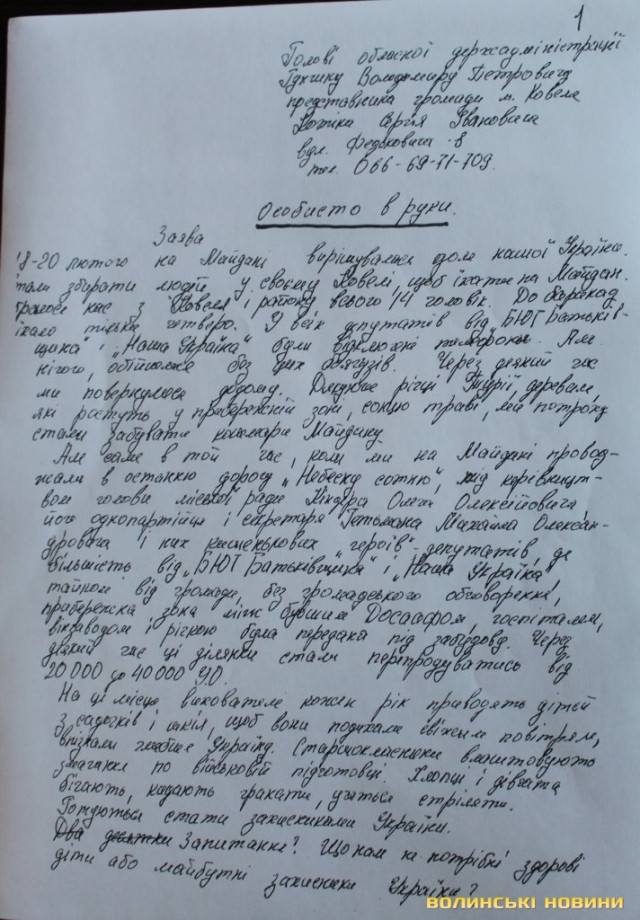 1
Голові обласної держадміністрації
Гунчику Володимиру Петровичу
представника громади м. Ковеля
Котіка Сергія Івановича
вул. Федьковича 8
тел. 066-69-71-709.
Особисто в руки.
Заява
18-20 лютого на Майдані вирішувалася доля нашої України.
стали збирати людей у своєму Ковелі, щоб їхати на Майдан.
нас з Ковеля і району всього 14 чоловік. До барикад
їхало тільки четверо. У всіх депутатів від „БЮТ Батьків-
щина" і „Наша Україна" були відключені телефони. Але
нічого, обійшлося без цих боягузів. Через деякий час
ми повернулися додому. Дякуючи річці Турії, деревам,
які ростуть у прибережній зоні, сокцю траві, ми потроху
стали забувати кошмари Майдану.
Але саме в той час, коли ми на Майдані провод-
жали в останню дорогу „Небесну сотню", під керівницт-
вом голови міської ради Кіндера Олега Олексійовича,
його однопартійця і секретаря Гетьмана Михайла Олексан-
дровича і них кишенькових „героїв"-депутатів, де
більшість від „БЮТ Батьківщина" і „Наша Україна"
тайком від громади, без громадського обговорення,
прибережна зона між бувшим Досаафом, госпіталем,
візваводом і річкою була передана під забудову. Через
деякий час ці ділянки стали перепродуватись від
20 000 до 40 000 У.О.
На ці місця вихователі кожен рік приводять дітей
з садочків і шкіл, щоб вони подихали свіжим повітрям,
взнали Україну. Старшокласники влаштовують
змагання по військовій підготовці. Хлопці і дівчата
бігають, кидають гранати, учаться стріляти.
Готуються стати захисниками України.
Два десятки Запитання? Що нам не потрібні здорові
діти або майбутні захисники України?
ВОЛИНСЬКІ НОВИНИ